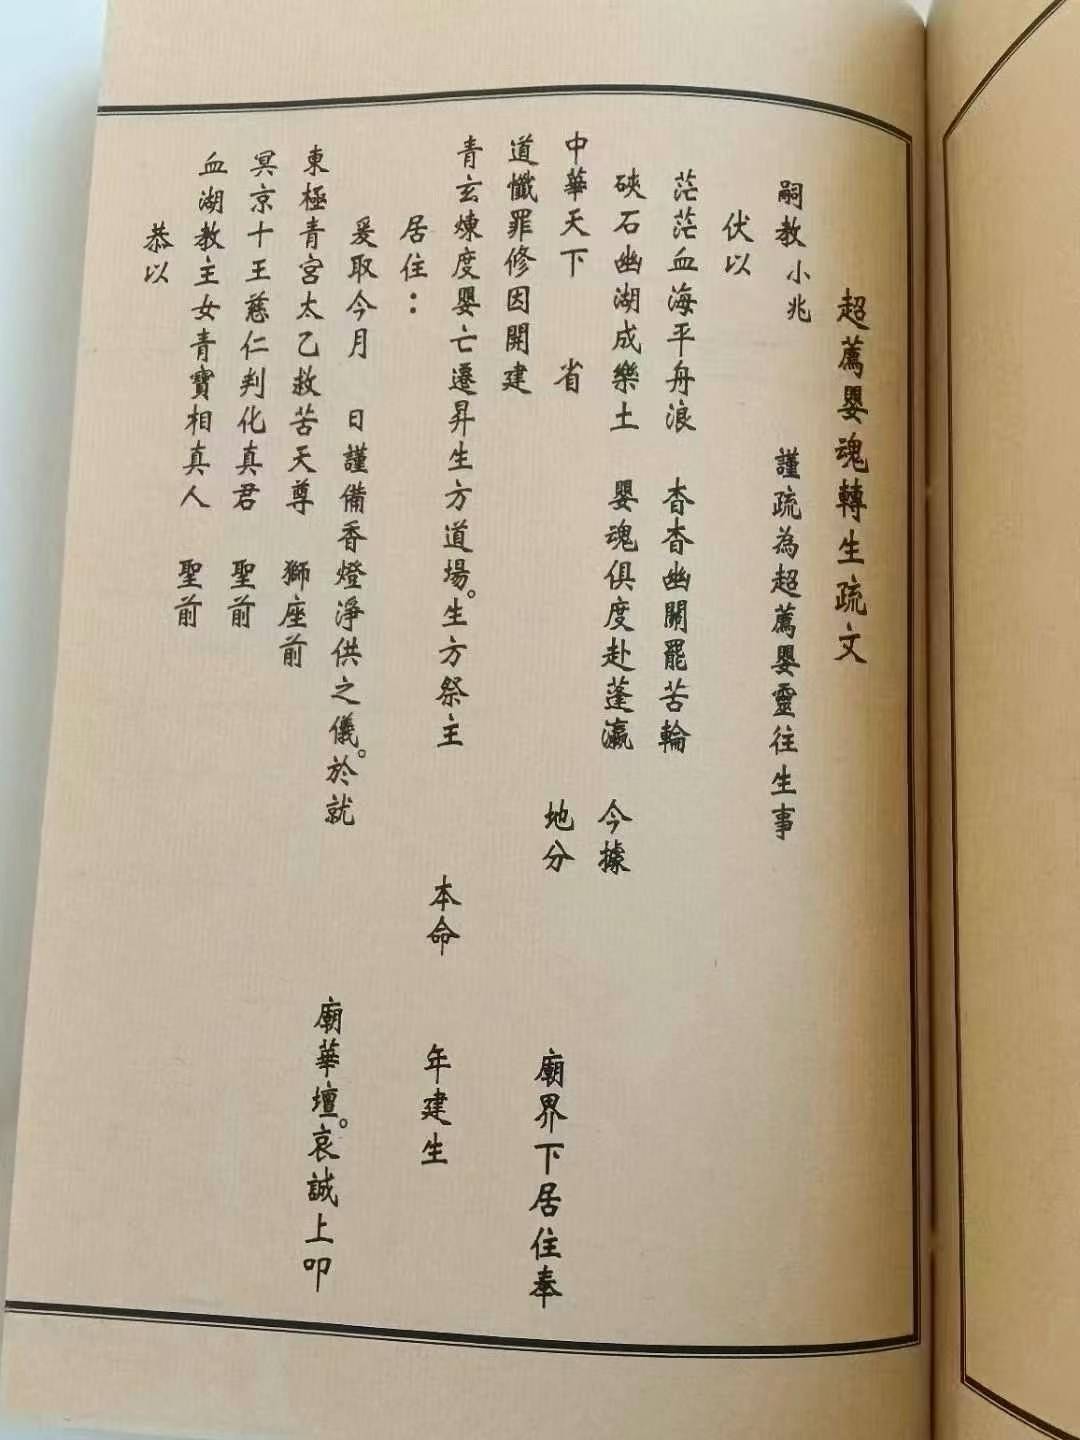 超薦嬰魂轉生疏文
嗣教小兆　謹疏為超薦嬰靈往生事
伏以
茫茫血海平舟浪　杳杳幽關罷苦輪
硤石幽湖成樂土　嬰魂俱度赴蓬瀛　今據
中華天下　省　地分　廟界下居住奉
道懺罪修因開建
青玄煉度嬰亡遷昇生方道場。生方祭主　本命　年建生
居住：
爰取今月　日謹備香燈淨供之儀。於就　廟華壇。哀誠上叩
東極青宮太乙救苦天尊　獅座前
冥京十王慈仁判化真君　聖前
血湖教主女青寶相真人　聖前
恭以